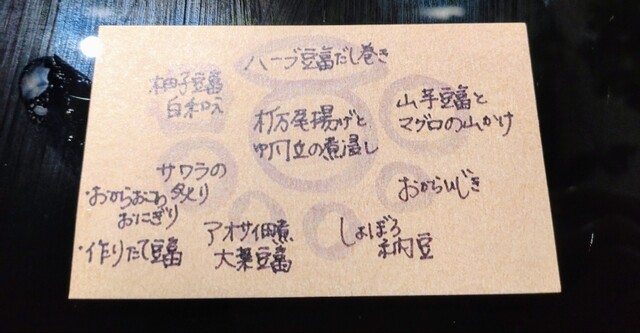 ハーブ豆富だし巻き
柚子豆富
白和え
栃尾揚げと
の煮浸し
山芋豆富と
マグロの山かけ
サワラの
炙り
おからひじき
・おからおこわ
おにぎり
・作りたて豆富
アオサ佃煮
大葉豆富
しょぼろ
納豆